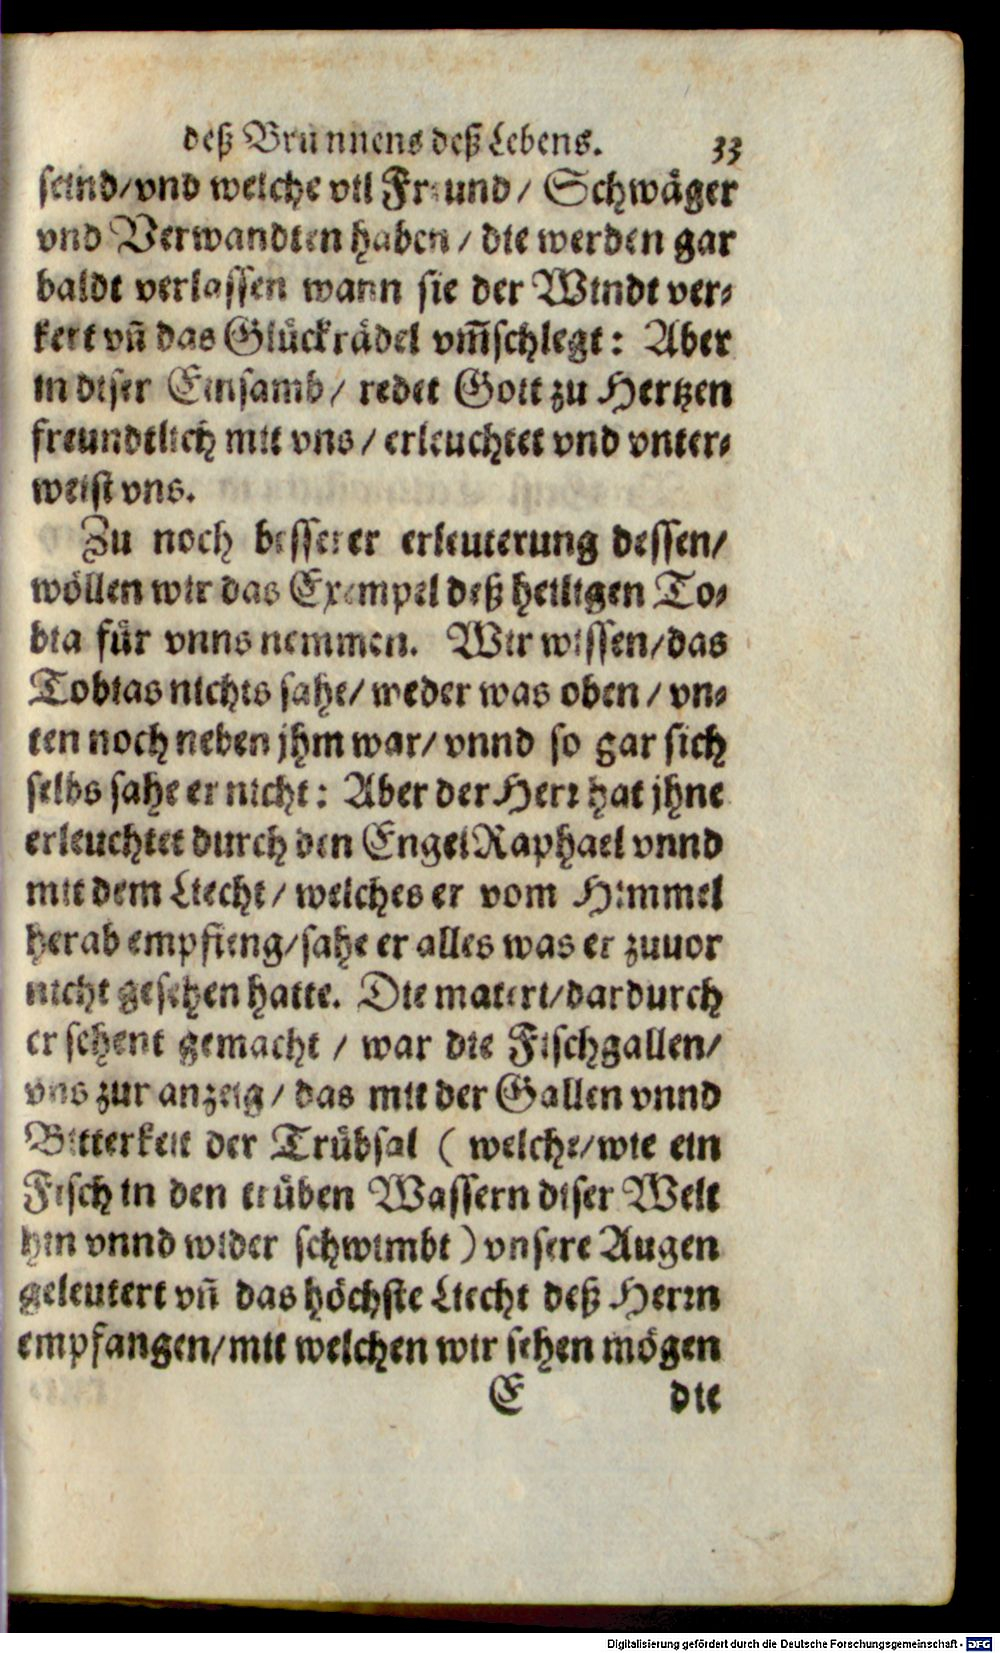 deß Brunnens deß Lebens. 33
seind/vnd welche vil Freund/ Schwäger
vnd Verwandten haben/ die werden gar
baldt verlassen wann sie der Windt ver-
kert vñ das Glückrädel vm̃schlegt: Aber
in diser Einsamb/ redet Gott zu Hertzen
freundtlich mit vns/ erleuchtet vnd vnter-
weist vns.
Zu noch besserer erleuterung dessen/
wöllen wir das Exempel deß heiligen To-
bia für vnns nemmen. Wir wissen/das
Tobias nichts sahe/ weder was oben/ vn-
ten noch neben jhm war/ vnnd so gar sich
selbs sahe er nicht: Aber der Herr hat jhne
erleuchtet durch den Engel Raphael vnnd
mit dem Liecht/ welches er vom Himmel
herab empfieng/sahe er alles was er zuuor
nicht gesehen hatte. Die materi/dardurch
er sehent gemacht/ war die Fischgallen/
vns zur anzeig/ das mit der Gallen vnnd
Bitterkeit der Trübsal ( welche/wie ein
Fisch in den trüben Wassern diser Welt
hin vnnd wider schwimbt ) vnsere Augen
geleutert vñ das höchste Liecht deß Herrn
empfangen/mit welchen wir sehen mögen
E die
Digitalisierung gefördert durch die Deutsche Forschungsgemeinschaft - DFG